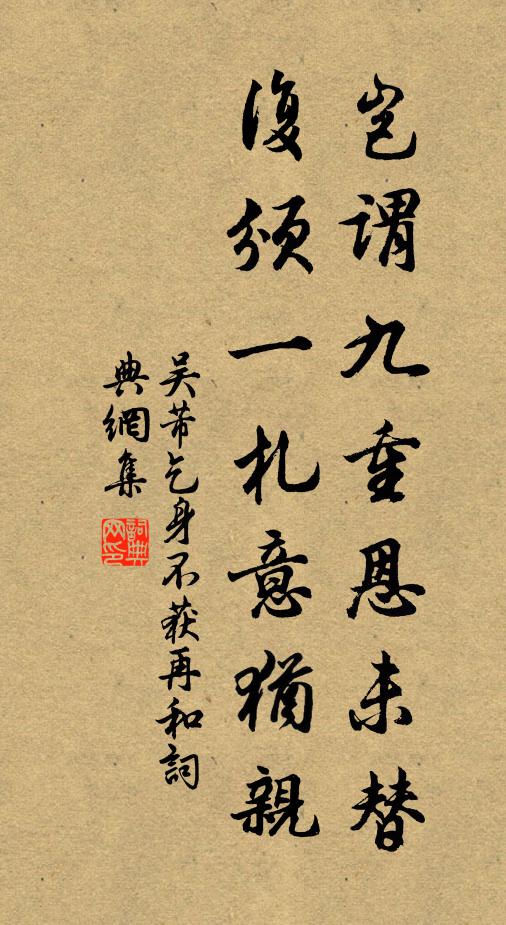 豈謂九重恩未替
復頒一札意猶親
吳芾乞身不获再和詞
典網集
詞典网印